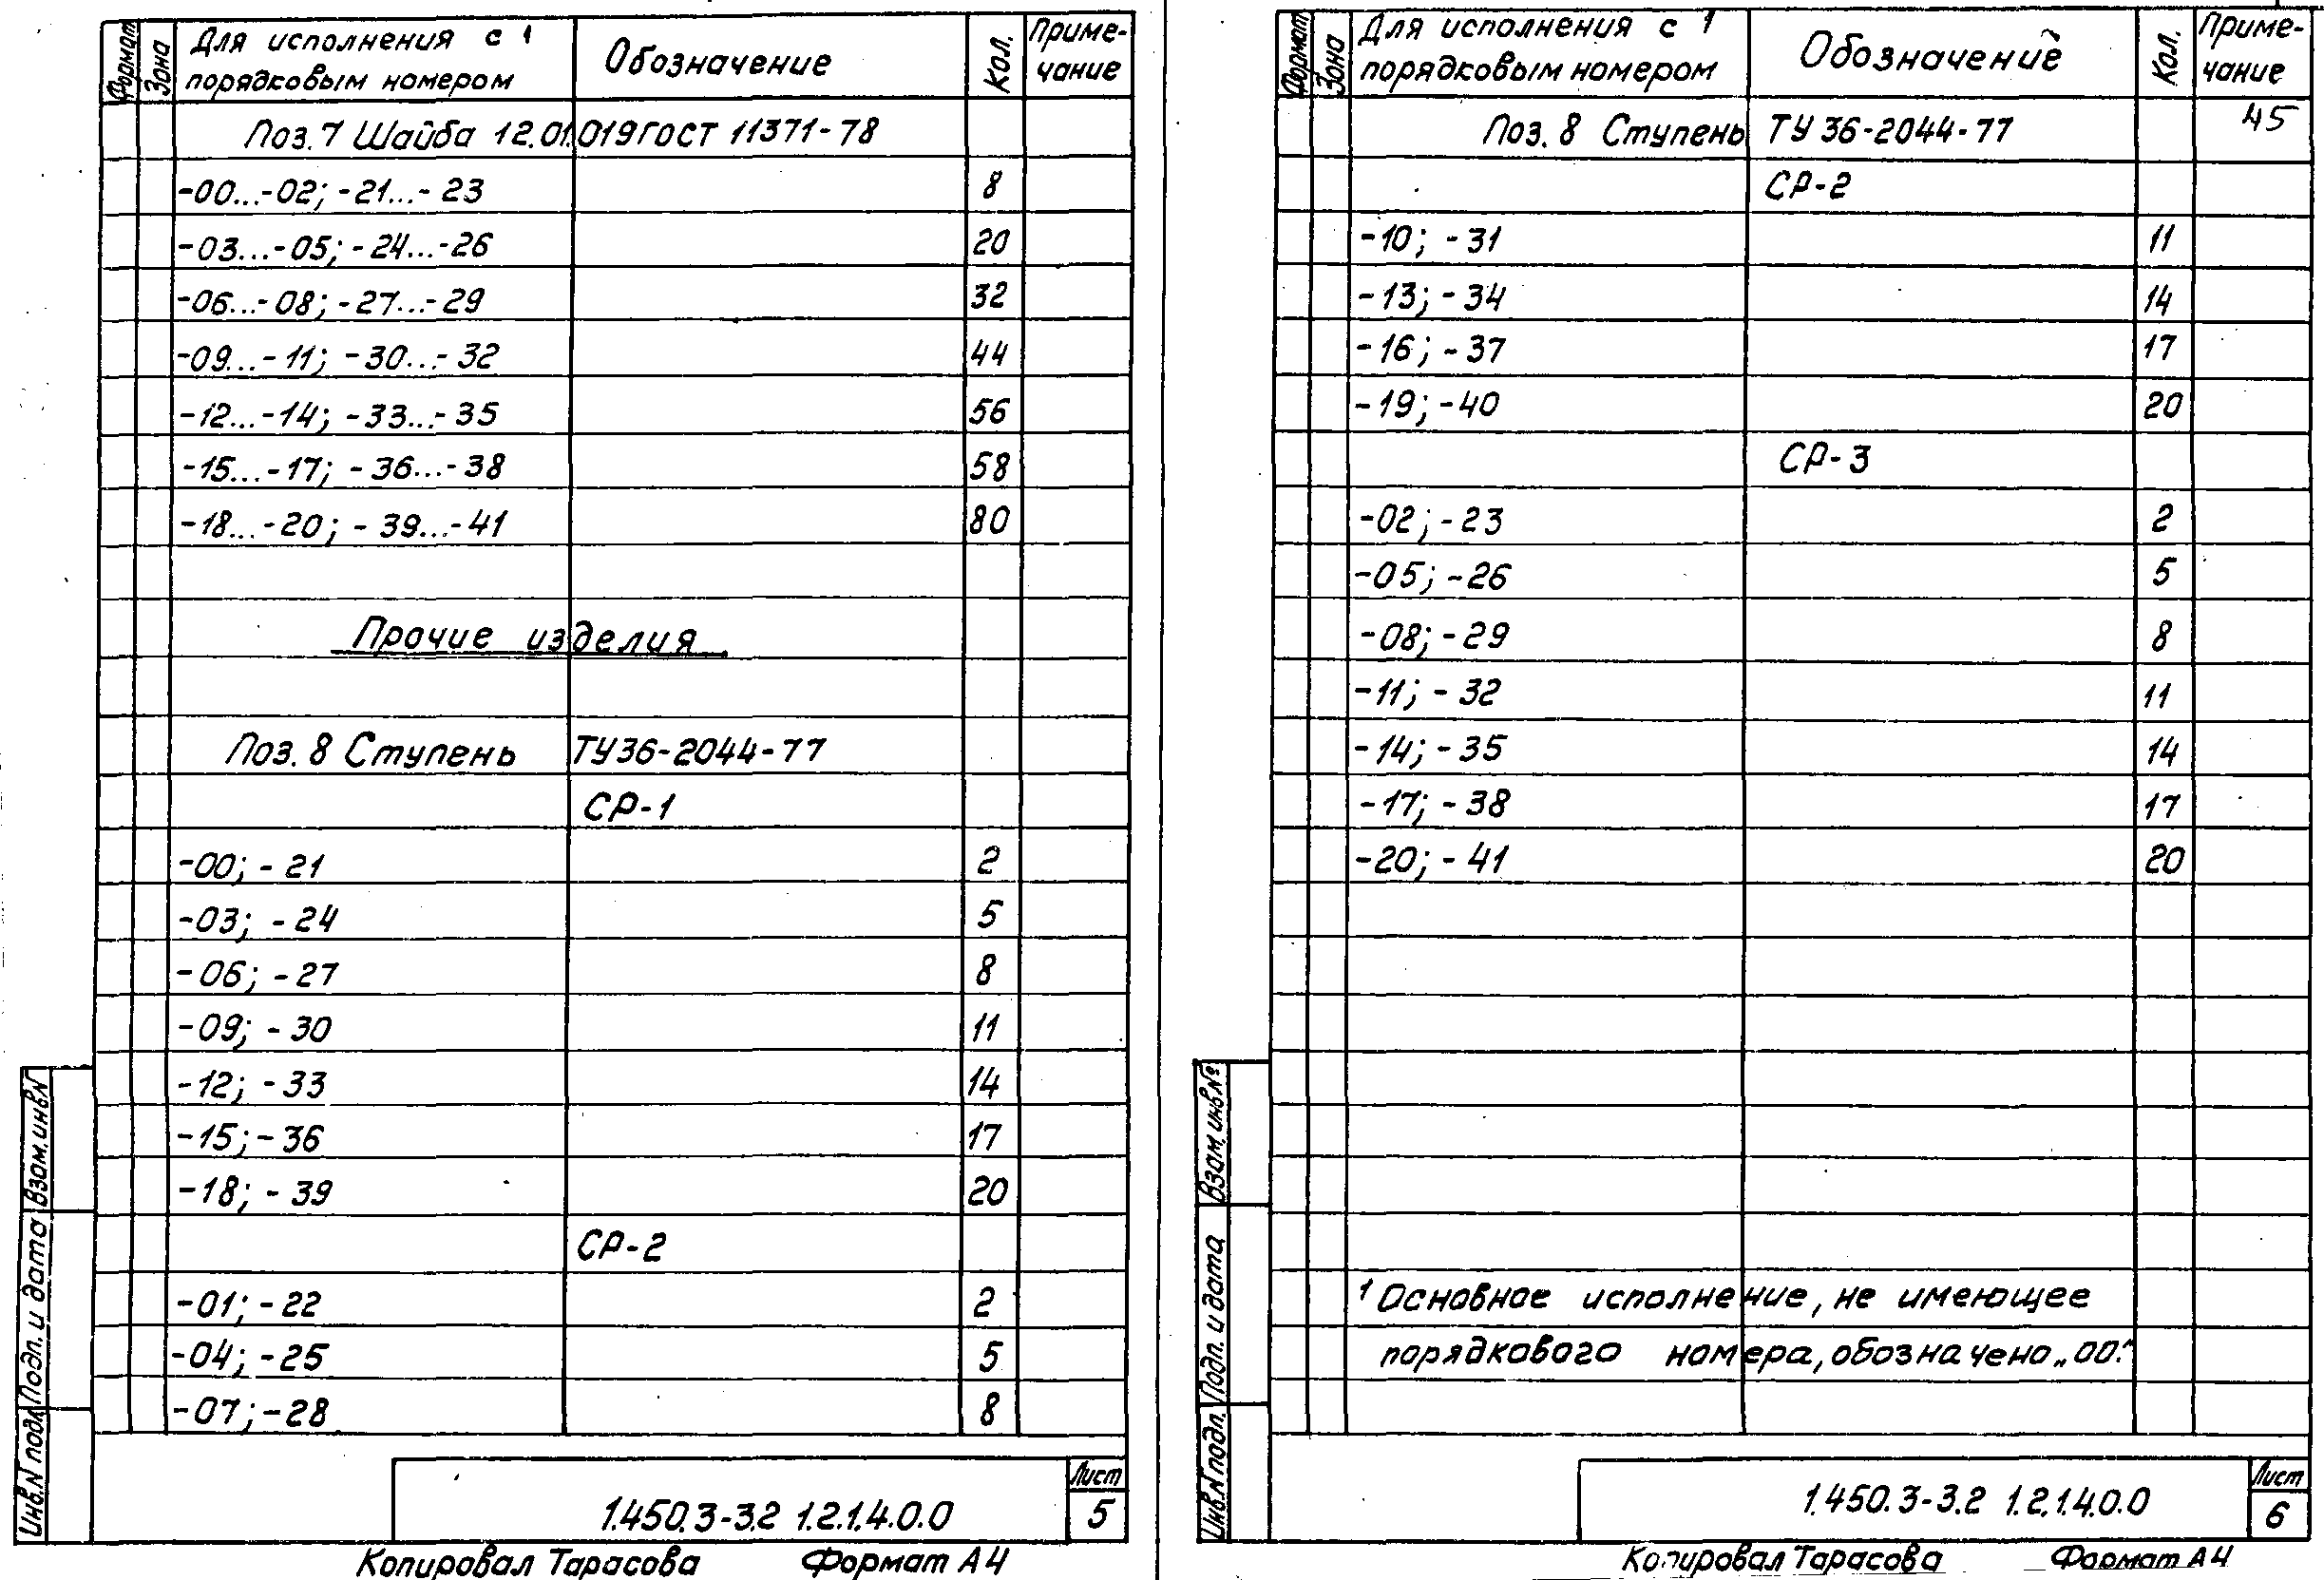 Формат
Зона
Для исполнения с 1
порядковым номером
Обозначение
Кол.
Приме-
чание
Поз. 7 Шайба 12.01.019 ГОСТ 11371-78
-00...-02; -21...-23 8
-03...-05; -24...-26 20
-06...-08; -27...-29 32
-09...-11; -30...-32 44
-12...-14; -33...-35 56
-15...-17; -36...-38 58
-18...-20; -39...-41 80
Прочие изделия
Поз. 8 Ступень ТУ36-2044-77
СР-1
-00; -21 2
-03; -24 5
-06; -27 8
-09; -30 11
-12; -33 14
-15; -36 17
-18; -39 20
СР-2
-01; -22 2
-04; -25 5
-07; -28 8
Взам. инв. N
Подп. и дата
Инв. N подл.
1.450.3-3.2 1.2.1.4.0.0
Лист
5
Копировал Тарасова Формат А4
Формат
Зона
Для исполнения с 1
порядковым номером
Обозначение
Кол.
Приме-
чание
45
Поз. 8 Ступень ТУ 36-2044-77
СР-2
-10; -31 11
-13; -34 14
-16; -37 17
-19; -40 20
СР-3
-02; -23 2
-05; -26 5
-08; -29 8
-11; -32 11
-14; -35 14
-17; -38 17
-20; -41 20
1 Основное исполнение, не имеющее
порядкового номера, обозначено „00."
Взам. инв. №
Подп. и дата
Инв. N подл.
1.450.3-3.2 1.2.1.4.0.0
Лист
6
Копировал Тарасова Формат А4